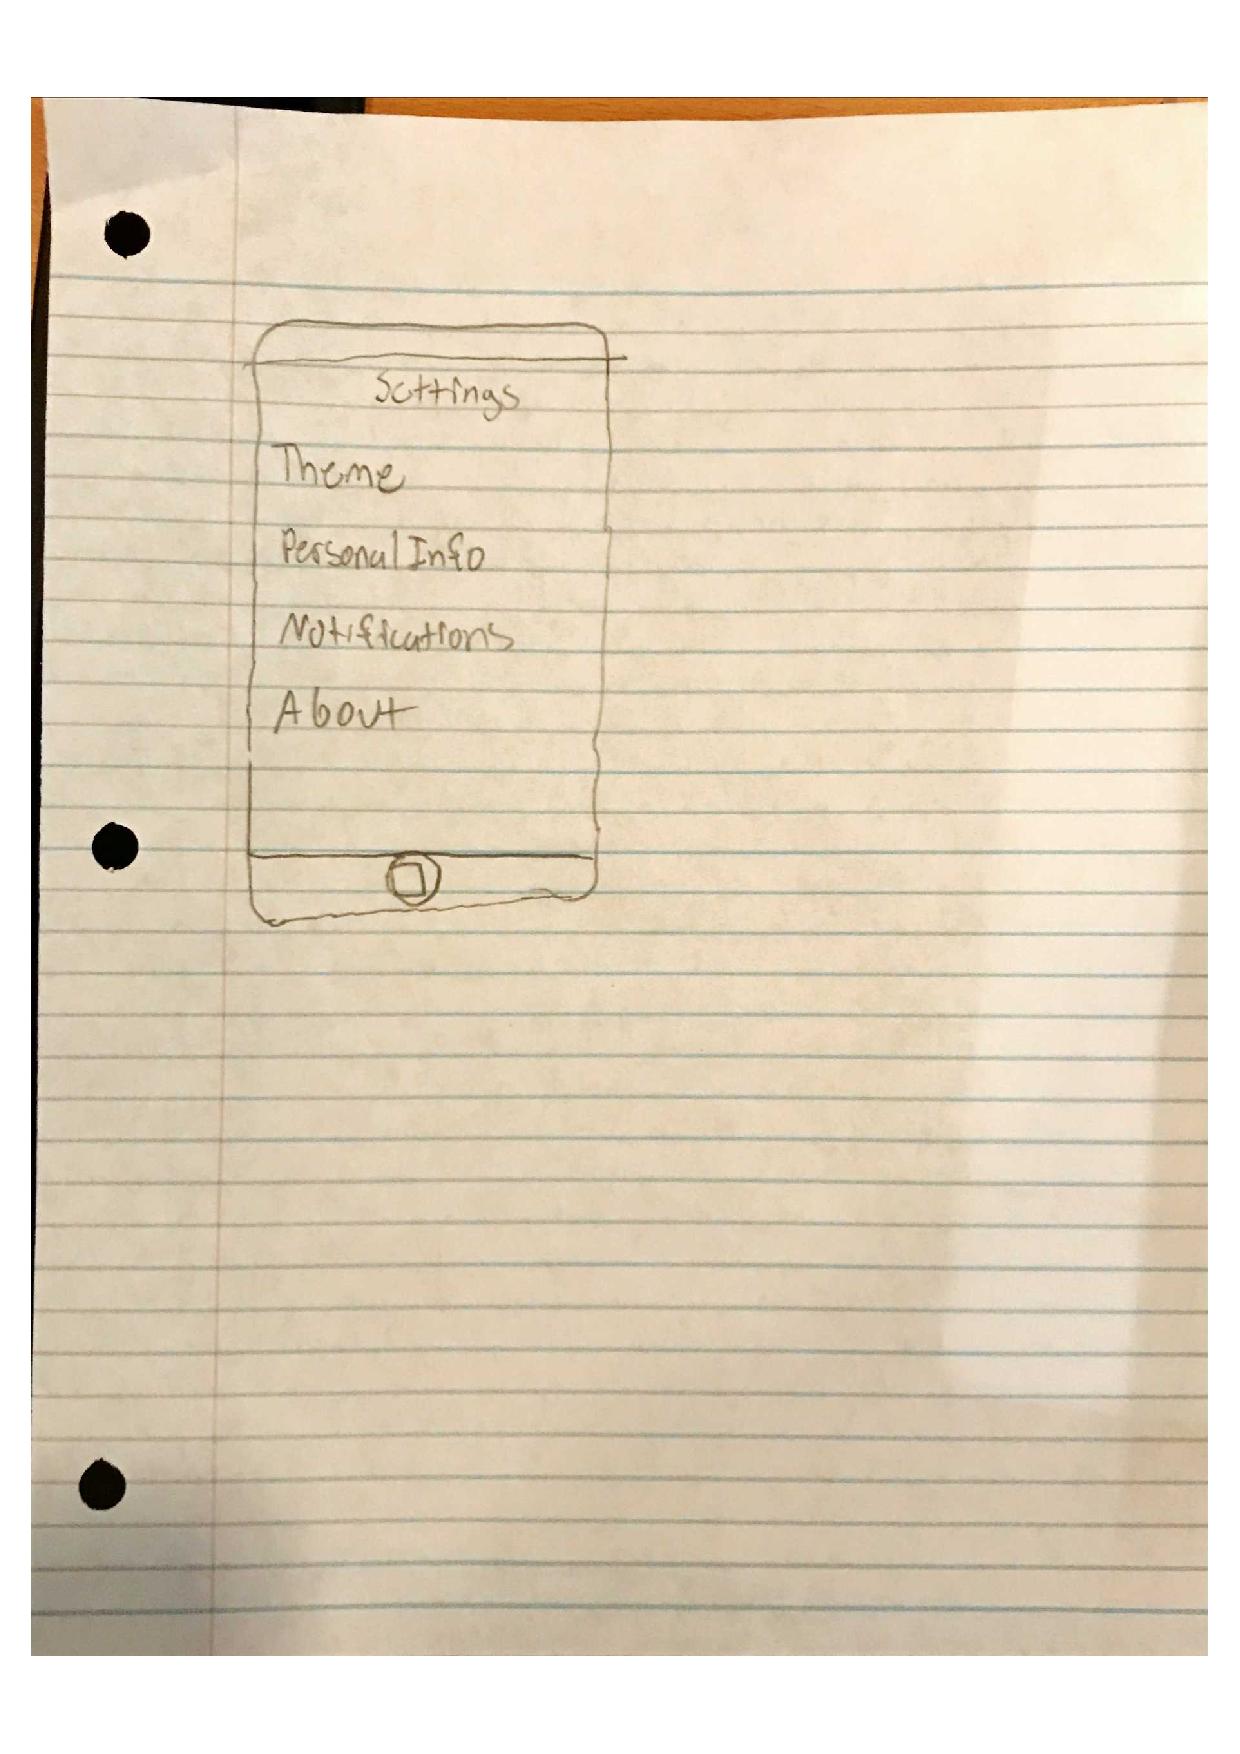 Settings
Theme
Personal Info
Notifications
About